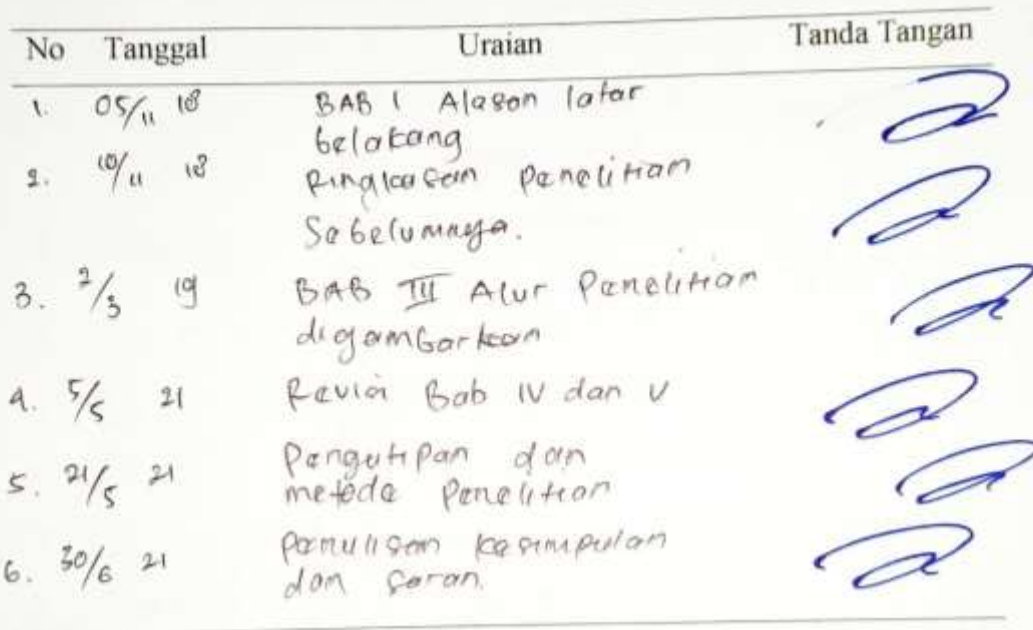 No Tanggal Uraian Tanda Tangan
1. 05/11 18 BAB I Alasan latar
belakang
2. 10/11 18 Ringkasan Penelitian
Sebelumnya.
3. 2/3 19 BAB III Alur Penelitian
digambarkan
4. 5/5 21 Revisi Bab IV dan V
5. 21/5 21 Pengutipan dan
metode Penelitian
6. 30/6 21 Penulisan kesimpulan
dan saran.